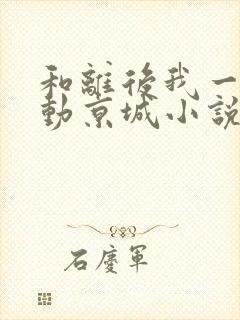 和離後我一
動京城小説
石慶軍